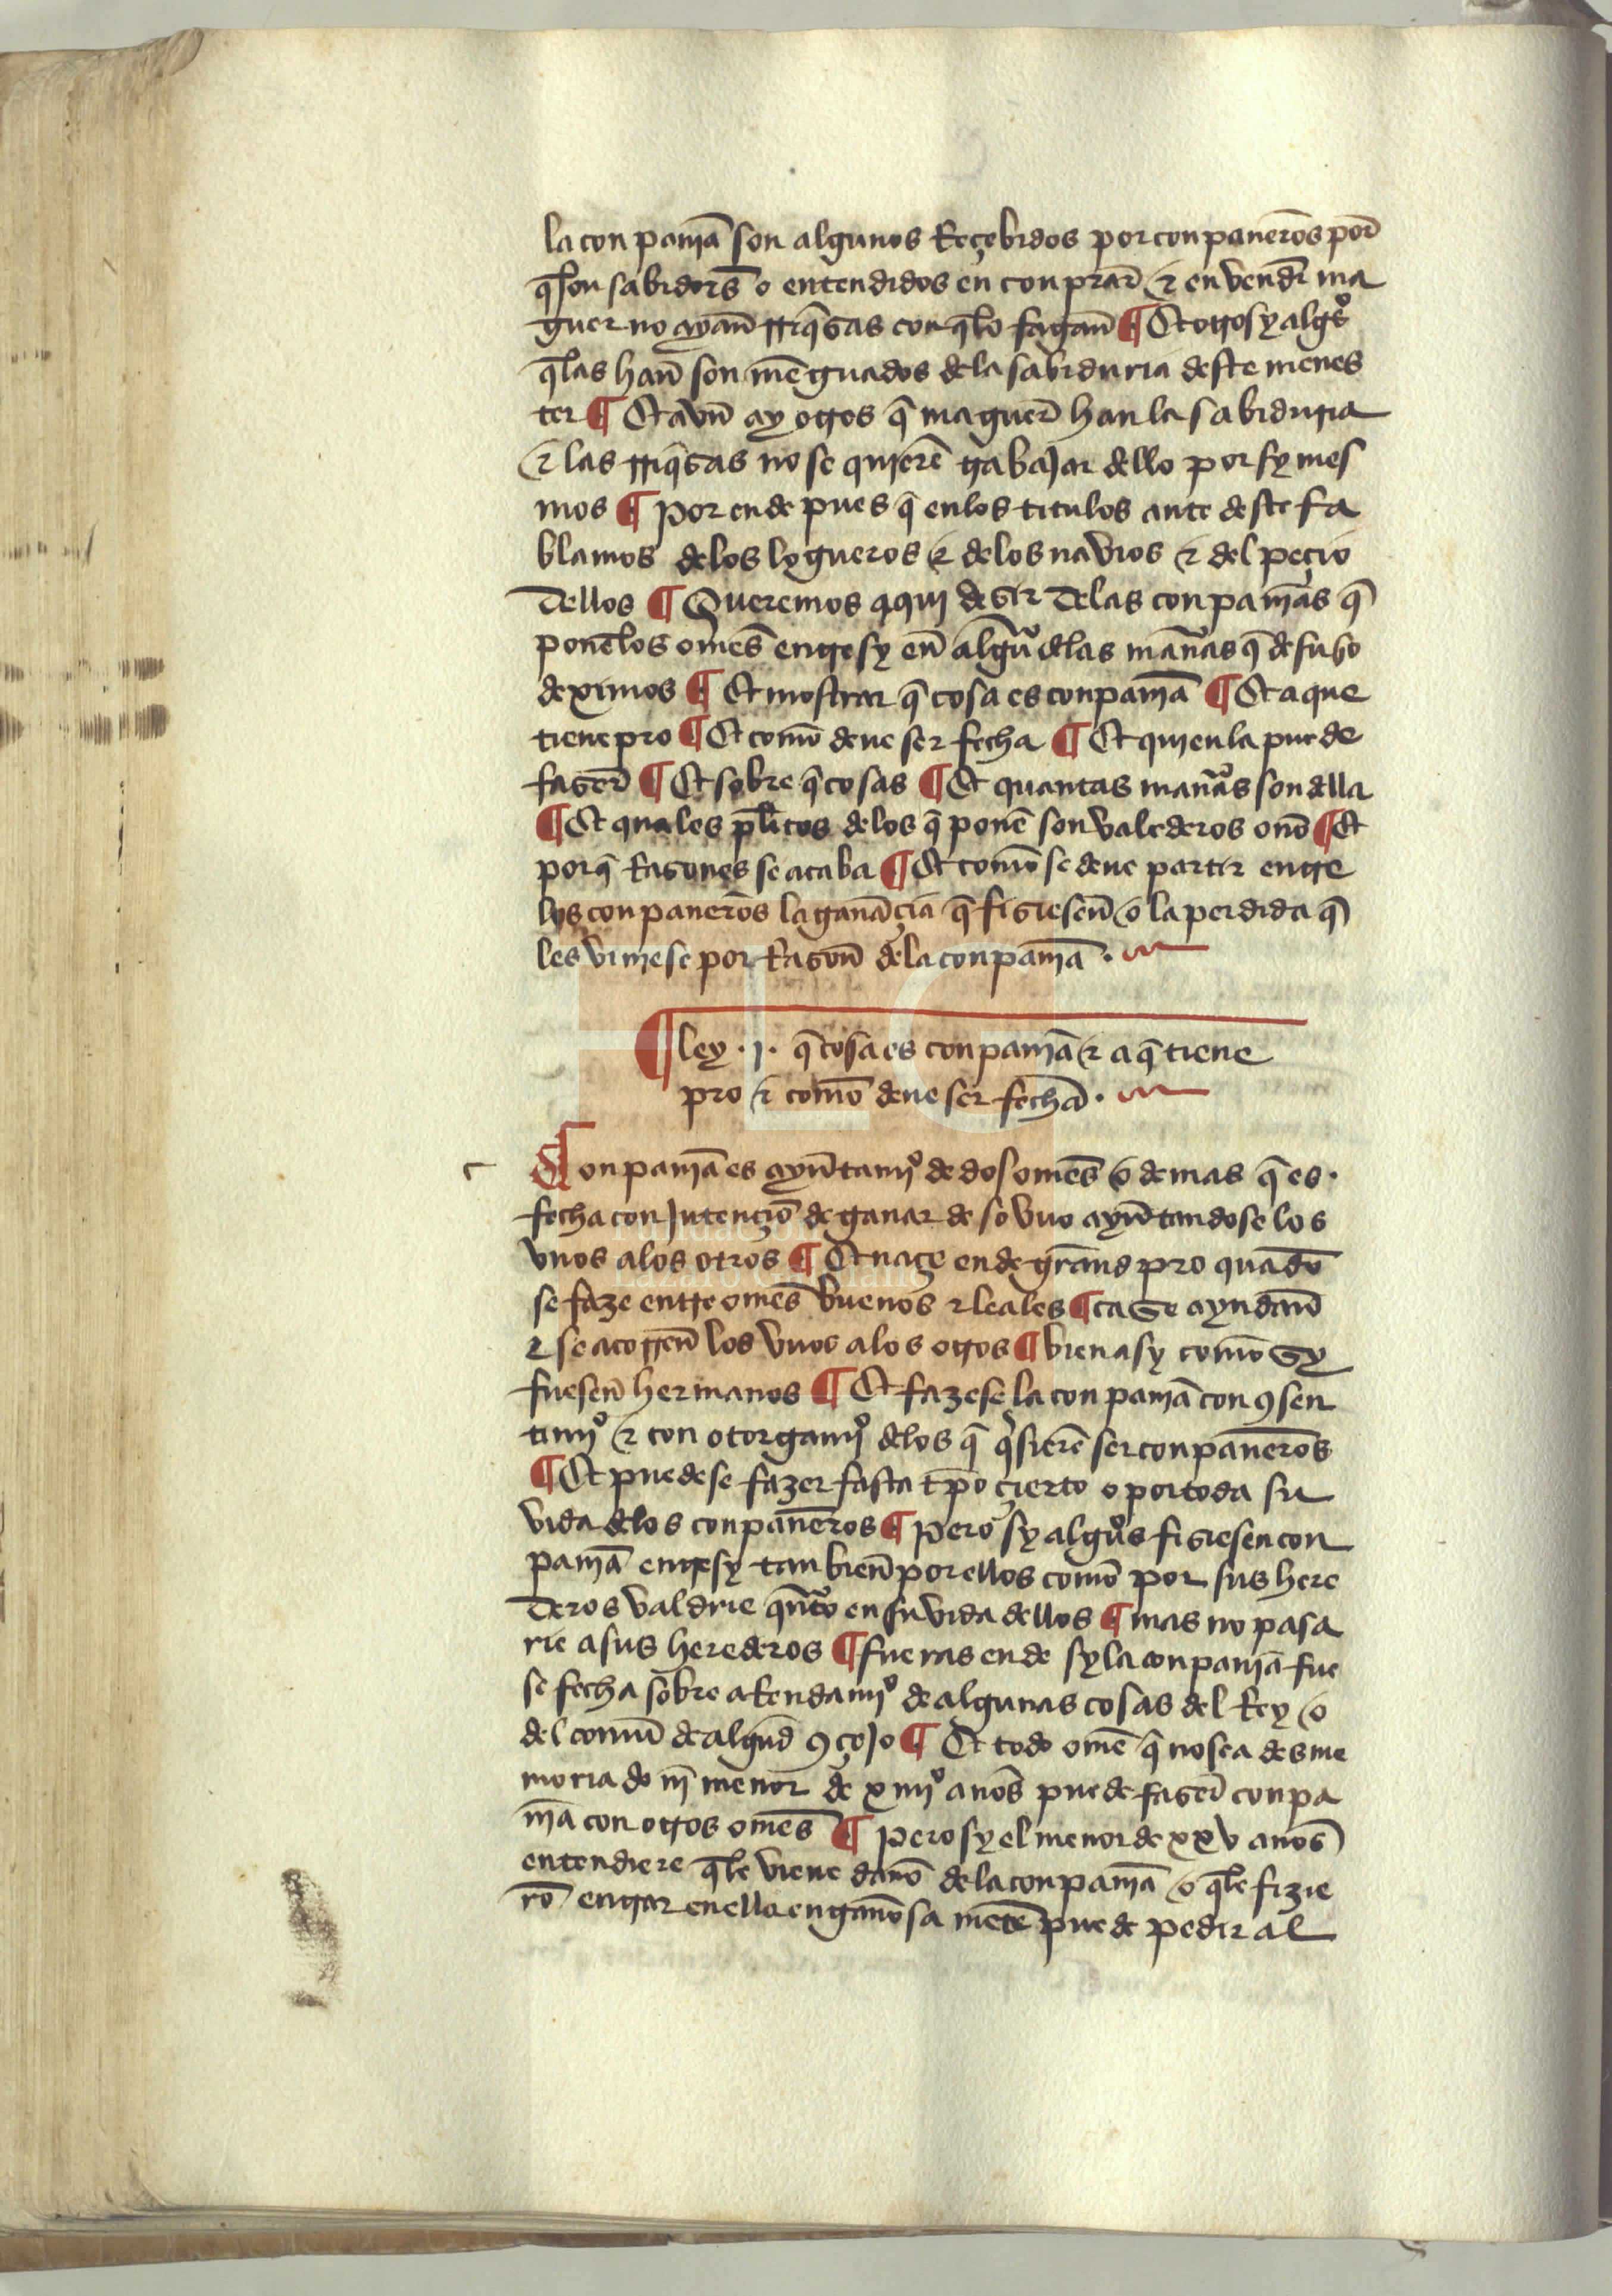 la conpanıa son algunos Reçebidos por conpaneros por
q̃ son sabidors̃ o entendidos en conprar ⁊ en vendr̃ ma
guer no ayan rriq̃sas con q̃ lo fagan ¶ Et otros y algũos
q̃ las han son mẽguados dela sabiduria deste menes
ter ¶ Et avn ay otros q̃ maguer han la sabiduria
⁊ las rriq̃sas no se quierẽ trabajar dello por sy mes
mos ¶ por ende pues q̃ enlos titulos ante deste fa
blamos delos logueros ⁊ delos navios ⁊ del peçio
dellos ¶ Queremos aqui desir delas conpanĩas q̃
ponẽ los omẽs entresy en algũo delas manãs q̃ desuso
deximos ¶ Et mostrar q̃ cosa es conpanĩa ¶ Et a que
tiene pro ¶ Et comõ deue ser fecha ¶ Et quien la puede
faser ¶ Et sobre q̃ cosas ¶ Et quantas manãs son della
¶ Et quales plitos delos q̃ ponẽ son valederos o nõ ¶ Et
porq̃ Rasones se acaba ¶ Et comõ se deue partir entre
los conpaneros la ganãçia q̃ fisiesen o la perdida q̃
les viniese por Rason dela conpanĩa .
¶ ley . j . q̃ cosa es conpanĩa ⁊ a q̃ tiene
pro ⁊ comõ deue ser fecha .
c Conpanĩa es ayũtamjº de dos omẽs o de mas q̃ es .
fecha con Jntençiõ de ganar de so vno ayũtandose los
vnos alos otros ¶ Et naçe ende grãnd pro quãdo
se faze entre omẽs buenos ⁊ leales ¶ ca se ayudan
⁊ se acorren los vnos alos otros ¶ bien asy comõ sy
fuesen hermanos ¶ Et fazese la conpanĩa con ꝯsen
timjº ⁊ con otorgamjº delos q̃ q̃sierẽ ser conpaneros
¶ Et puedese fazer fasta tpõ çierto o por toda su
vida delos conpaneros ¶ pero sy algũos fisiesen con
panĩa entresy tan bien por ellos comõ por sus here
deros valdrie qñto en su vida dellos ¶ mas no pasa
rie a sus herederos ¶ fueras ende sy la conpanĩa fue
se fecha sobre aRendamjº de algunas cosas del Rey o
del comũ de algũd ꝯçejo ¶ Et todo omẽ q̃ no sea desme
moriado nj̃ menor de xiiijº anõs puede faser conpa
nĩa con otros omẽs ¶ pero sy el menor de xxv anõs
entendiere q̃ le viene danõ dela conpanĩa o q̃ le fizie
rõ entrar en ella enganõsa mẽte puede pedir al